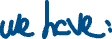 we have: